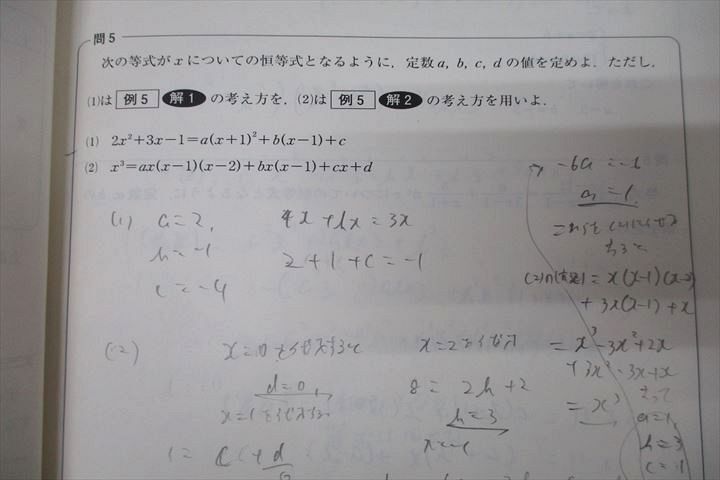 問5
次の等式が x についての恒等式となるように，定数 a, b, c, d の値を定めよ．ただし，
(1)は 例5 解1 の考え方を，(2)は 例5 解2 の考え方を用いよ．
(1) 2x²+3x−1=a(x+1)²+b(x−1)+c
(2) x³=ax(x−1)(x−2)+bx(x−1)+cx+d
(1) a=2, 4x+bx=3x
b=-1 2+1+c=-1
c=-4
(2) x=0を代入すると x=2を代入
d=0, 8=2b+2
x=1を代入すると b=3
x=-1
1=c+d
-6a=-6
a=1
=x(x-1)(x-2)
+3x(x-1)+x
=x³-3x²+2x
+3x²-3x+x
=x³
a=1,
b=3
c=1